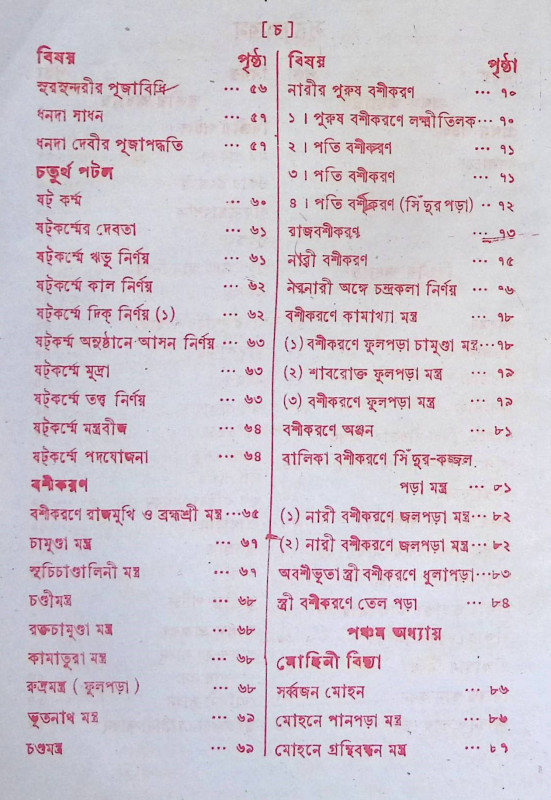 [ চ ]
বিষয় পৃষ্ঠা
সুরসুন্দরীর পূজাবিধি ... ৫৬
ধনদা সাধন ... ৫৭
ধনদা দেবীর পূজাপদ্ধতি ... ৫৭
চতুর্থ পটল
ষট্ কর্ম্ম ... ৬০
ষট্‌কর্ম্মের দেবতা ... ৬১
ষট্‌কর্ম্মে ঋতু নির্ণয় ... ৬১
ষট্‌কর্ম্মে কাল নির্ণয় ... ৬২
ষট্‌কর্ম্মে দিক্ নির্ণয় (১) ... ৬২
ষট্‌কর্ম্ম অনুষ্ঠানে আসন নির্ণয় ... ৬৩
ষট্‌কর্ম্মে মুদ্রা ... ৬৩
ষট্‌কর্ম্মে তত্ত্ব নির্ণয় ... ৬৩
ষট্‌কর্ম্মে মন্ত্রবীজ ... ৬৪
ষট্‌কর্ম্মে পদযোজনা ... ৬৪
বশীকরণ
বশীকরণে রাজমুখি ও ব্রহ্মশ্রী মন্ত্র...৬৫
চামুণ্ডা মন্ত্র ... ৬৭
সূচিচাণ্ডালিনী মন্ত্র ... ৬৭
চণ্ডীমন্ত্র ... ৬৮
রক্তচামুণ্ডা মন্ত্র ... ৬৮
কামাতুরা মন্ত্র ... ৬৮
রুদ্রমন্ত্র ( ফুলপড়া ) ... ৬৮
ভূতনাথ মন্ত্র ... ৬৯
চণ্ডমন্ত্র ... ৬৯
বিষয় পৃষ্ঠা
নারীর পুরুষ বশীকরণ ... ৭০
১ । পুরুষ বশীকরণে লক্ষ্মীতিলক...৭০
২ । পতি বশীকরণ ... ৭১
৩ । পতি বশীকরণ ... ৭১
৪ । পতি বশীকরণ (সিঁদুর পড়া) .. ৭২
রাজবশীকরণ ... ৭৩
নারী বশীকরণ ... ৭৫
নরনারী অঙ্গে চন্দ্রকলা নির্ণয় ... ৭৬
বশীকরণে কামাখ্যা মন্ত্র ... ৭৮
(১) বশীকরণে ফুলপড়া চামুণ্ডা মন্ত্র...৭৮
(২) শাবরোক্ত ফুলপড়া মন্ত্র ... ৭৯
(৩) বশীকরণে ফুলপড়া মন্ত্র ... ৭৯
বশীকরণে অঞ্জন ... ৮১
বালিকা বশীকরণে সিঁদুর-কজ্জল
পড়া মন্ত্র ... ৮১
(১) নারী বশীকরণে জলপড়া মন্ত্র...৮২
(২) নারী বশীকরণে জলপড়া মন্ত্র...৮২
অবশীভূতা স্ত্রী বশীকরণে ধূলাপড়া...৮৩
স্ত্রী বশীকরণে তেল পড়া ... ৮৪
পঞ্চম অধ্যায়
মোহিনী বিদ্যা
সর্ব্বজন মোহন ... ৮৬
মোহনে পানপড়া মন্ত্র ... ৮৬
মোহনে গ্রন্থিবন্ধন মন্ত্র ... ৮৭